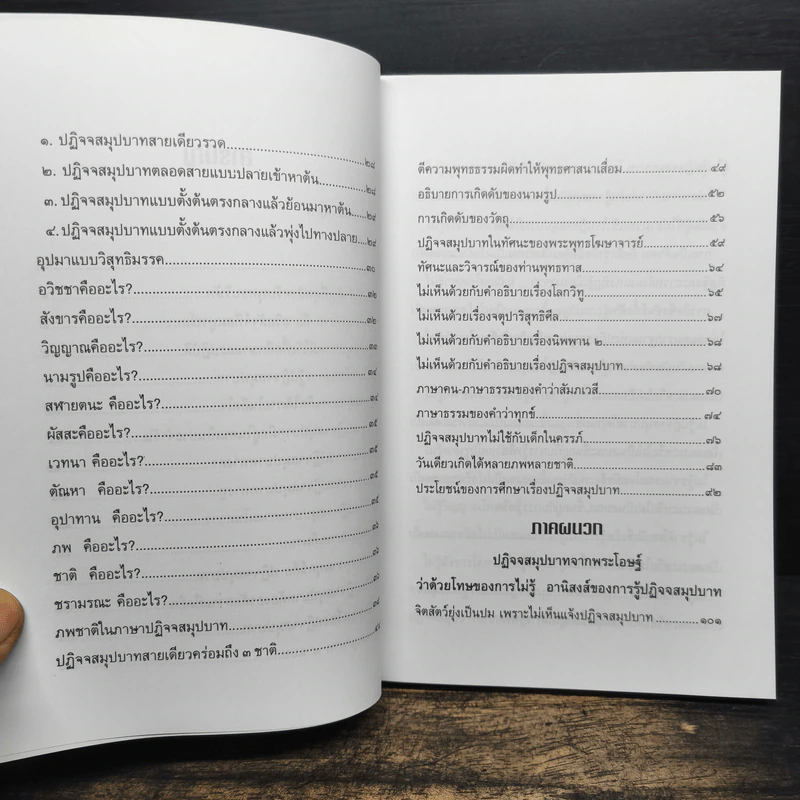 ๑. ปฏิจจสมุปบาทสายเดียวรวด........................................๒๘
๒. ปฏิจจสมุปบาทตลอดสายแบบปลายเข้าหาต้น...............๒๘
๓. ปฏิจจสมุปบาทแบบตั้งต้นตรงกลางแล้วย้อนมาหาต้น....๒๙
๔. ปฏิจจสมุปบาทแบบตั้งต้นตรงกลางแล้วพุ่งไปทางปลาย....๒๙
อุปมาแบบวิสุทธิมรรค..................................................๓๐
อวิชชาคืออะไร?.......................................................๓๒
สังขารคืออะไร?.......................................................๓๒
วิญญาณคืออะไร?....................................................๓๓
นามรูปคืออะไร?......................................................๓๔
สฬายตนะ คืออะไร?.................................................๓๔
ผัสสะคืออะไร?........................................................๓๕
เวทนา คืออะไร?......................................................๓๕
ตัณหา คืออะไร?......................................................๓๕
อุปาทาน คืออะไร?...................................................๓๕
ภพ คืออะไร?..........................................................๓๖
ชาติ คืออะไร?.........................................................๓๖
ชรามรณะ คืออะไร?.................................................๓๖
ภพชาติในภาษาปฏิจจสมุปบาท....................................๓๘
ปฏิจจสมุปบาทสายเดียวคร่อมถึง ๓ ชาติ.......................
ตีความพุทธธรรมผิดทำให้พุทธศาสนาเสื่อม....................๔๙
อธิบายการเกิดดับของนามรูป............ ........................๕๒
การเกิดดับของวัตถุ...................................................๕๖
ปฏิจจสมุปบาทในทัศนะของพระพุทธโฆษาจารย์..............๕๙
ทัศนะและวิจารณ์ของท่านพุทธทาส..............................๖๔
ไม่เห็นด้วยกับคำอธิบายเรื่องโลกวิทู..............................๖๕
ไม่เห็นด้วยเรื่องจตุปาริสุทธิศีล.....................................๖๗
ไม่เห็นด้วยกับคำอธิบายเรื่องนิพพาน ๒ .........................๖๘
ไม่เห็นด้วยกับคำอธิบายเรื่องปฏิจจสมุปบาท...................๖๘
ภาษาคน-ภาษาธรรมของคำว่าสัมภเวสี..........................๗๐
ภาษาธรรมของคำว่าทุกข์............................................๗๔
ปฏิจจสมุปบาทไม่ใช้กับเด็กในครรภ์..............................๗๖
วันเดียวเกิดได้หลายภพหลายชาติ................................๘๓
ประโยชน์ของการศึกษาเรื่องปฏิจจสมุปบาท...................๙๒
ภาคผนวก
ปฏิจจสมุปบาทจากพระโอษฐ์
ว่าด้วยโทษของการไม่รู้ อานิสงส์ของการรู้ปฏิจจสมุปบาท
จิตสัตว์ยุ่งเป็นปม เพราะไม่เห็นแจ้งปฏิจจสมุปบาท ............๑๐๑